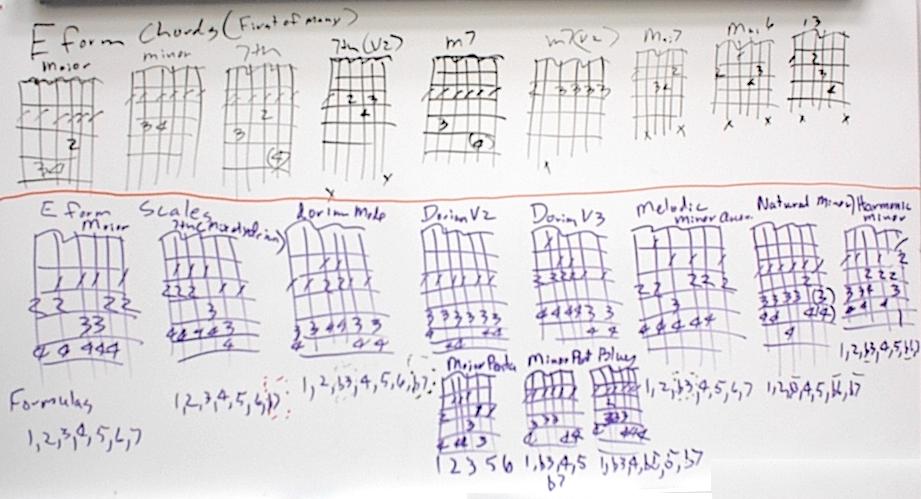 E form Chords (First of many)
major minor 7th 7th (V2) m7 m7 (V2) Maj7 Maj6 13
2
3 4
3 4
2
3
(4)
2 3
4
x x
3
(4)
2 3 3 3 3
x
2
3 4
x x
2 3
4
x x
1 2
3
4
x x
E form Scales
Major 7th (Mixolydian) Dorian Mode Dorian V2 Dorian V3 Melodic minor Natural minor / Harmonic minor
2 2 2 2
3 3
4 4 4 4 4
2 2 2
3
4 4 4 4 3
4
2 2
3 3 4 4 3 3
3 3 3 3 3 3
4 4
2 2 2
4 4 4 4 3 3
4 4
2 2 2 2 2
3
4 4 4 4 4
2
3 3 3 3 (3)
4 4
4
2
2 2 2
3 3 4 3
4 4 4
1
Formulas
1,2,3,4,5,6,7
1,2,3,4,5,6,b7
1,2,b3,4,5,6,b7
1,2,b3,4,5,6,7
1,2,b3,4,5,b6,b7
1,2,b3,4,5,b6
Major Penta Minor Pent Blues
1 2 3 5 6
1,b3,4,5
b7
1,b3,4,b5,5,b7